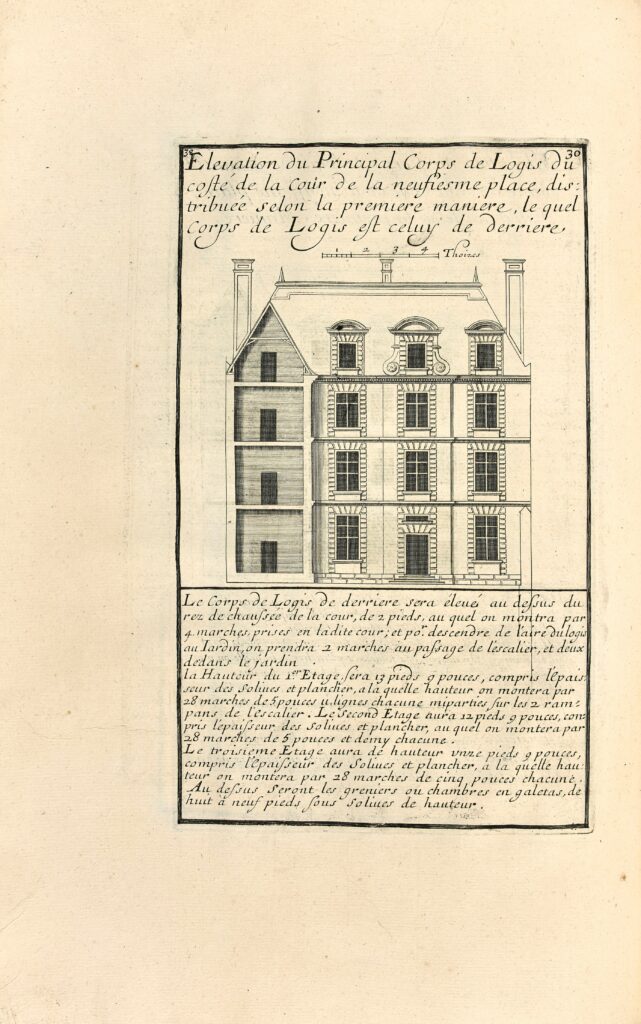 30 30
Elevation du Principal Corps de Logis du
costé de la Cour de la neufiesme place, dis:
tribuée selon la premiere maniere, le quel
Corps de Logis est celuy de derriere,
1 2 3 4 Thoizes
Le Corps de Logis de derriere sera éleué au dessus du
rez de chaussée de la cour, de 2 pieds, au quel on montra par
4 marches, prises en ladite cour; et po.r descendre de l'aire du logis
au Iardin, on prendra 2 marches au passage de l'escalier, et deux
dedans le jardin.
la Hauteur du 1.er Etage sera 13 pieds 9 pouces, compris l'épais
seur des Soliues et plancher, a la quelle hauteur on montera par
28 marches de 5 pouces lignes chacune miparties sur les 2 ram-
pans de l'escalier. Le Second Etage aura 12 pieds 9 pouces, com
pris l'epaisseur des soliues et plancher, au quel on montera par
28 marches de 5 pouces et demy chacune.
Le troisieme Etage aura de hauteur vnze pieds 9 pouces,
compris l'épaisseur des Soliues et plancher, à la quelle hau
teur on montera par 28 marches de cinq pouces chacune.
Au dessus Seront les greniers ou chambres en galetas, de
huit à neuf pieds sous Soliues de hauteur.